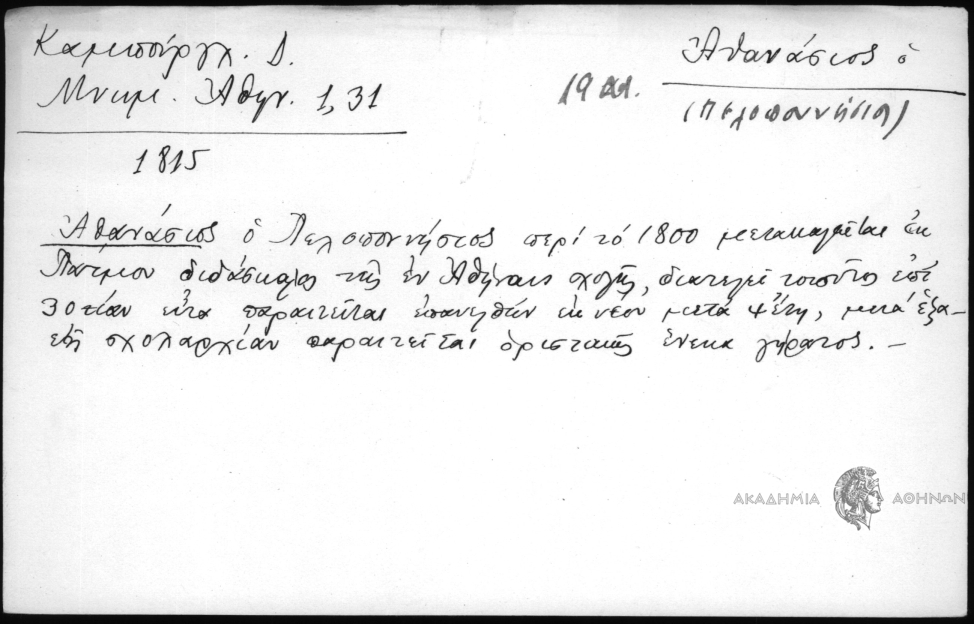 Καμπούργλ. Δ.
Μνημ. Ἀθην. 1,31
1815
Ἀθανάσιος ὁ
(Πελοποννήσιος)
19 αι.
Ἀθανάσιος ὁ Πελοποννήσιος περί τό 1800 μετακαλεῖται ἐκ
διδάσκαλος τῆς ἐν Ἀθήναις σχολῆς, διατελεῖ τοιοῦτος ἐπί
30τίαν εἶτα παραιτεῖται ἐπανελθών ἐκ νέου μετά ἔτη, μετά ἑξα-
ετῆ σχολαρχίαν παραιτεῖται ὁριστικῶς ἕνεκα γήρατος. –
ΑΚΑΔΗΜΙΑ ΑΘΗΝΩΝ